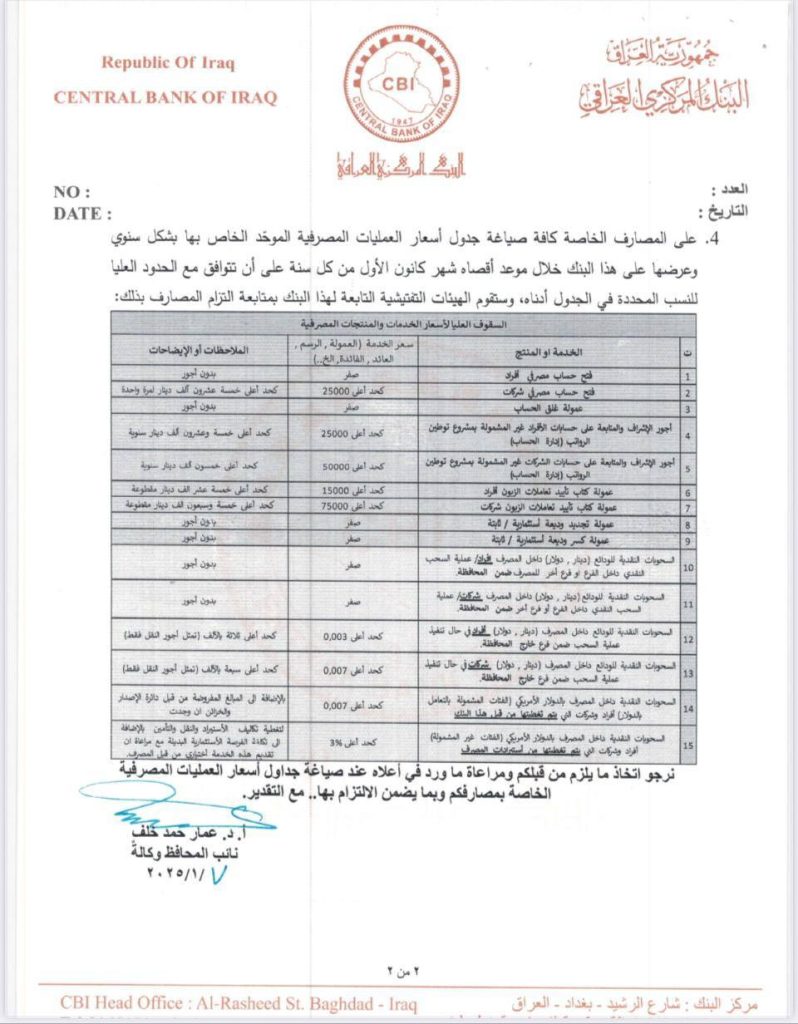 Republic Of Iraq
CENTRAL BANK OF IRAQ
CBI
1947
CENTRAL BANK OF IRAQ
البنك المركزي العراقي
جمهورية العراق
البنك المركزي العراقي
NO :
DATE :
العدد :
التاريخ :
4. على المصارف الخاصة كافة صياغة جدول أسعار العمليات المصرفية الموحّد الخاص بها بشكل سنوي
وعرضها على هذا البنك خلال موعد أقصاه شهر كانون الأول من كل سنة على أن تتوافق مع الحدود العليا
للنسب المحددة في الجدول أدناه، وستقوم الهيئات التفتيشية التابعة لهذا البنك بمتابعة التزام المصارف بذلك:
السقوف العليا لأسعار الخدمات والمنتجات المصرفية
ت الخدمة او المنتج سعر الخدمة (العمولة , الرسم , العائد , الفائدة, الخ..) الملاحظات أو الإيضاحات
1 فتح حساب مصرفي أفراد صفر بدون أجور
2 فتح حساب مصرفي شركات كحد أعلى 25000 كحد أعلى خمسة عشرون ألف دينار لمرة واحدة
3 عمولة غلق الحساب صفر بدون أجور
4 أجور الإشراف والمتابعة على حسابات الأفراد غير المشمولة بمشروع توطين الرواتب (إدارة الحساب) كحد أعلى 25000 كحد أعلى خمسة وعشرون ألف دينار سنوية
5 أجور الإشراف والمتابعة على حسابات الشركات غير المشمولة بمشروع توطين الرواتب (إدارة الحساب) كحد أعلى 50000 كحد أعلى خمسون ألف دينار سنوية
6 عمولة كتاب تأييد تعاملات الزبون أفراد كحد أعلى 15000 كحد أعلى خمسة عشر الف دينار مقطوعة
7 عمولة كتاب تأييد تعاملات الزبون شركات كحد أعلى 75000 كحد أعلى خمسة وسبعون الف دينار مقطوعة
8 عمولة تجديد وديعة أستثمارية / ثابتة صفر بدون أجور
9 عمولة كسر وديعة أستثمارية / ثابتة صفر بدون أجور
10 السحوبات النقدية للودائع (دينار , دولار) داخل المصرف أفراد/ عملية السحب النقدي داخل الفرع او فرع أخر للمصرف ضمن المحافظة. صفر بدون أجور
11 السحوبات النقدية للودائع (دينار , دولار) داخل المصرف شركات/ عملية السحب النقدي داخل الفرع أو فرع أخر ضمن المحافظة. صفر بدون أجور
12 السحوبات النقدية للودائع داخل المصرف (دينار , دولار) أفراد في حال تنفيذ عملية السحب ضمن فرع خارج المحافظة. كحد أعلى 0,003 كحد أعلى ثلاثة بالألف (تمثل أجور النقل فقط)
13 السحوبات النقدية للودائع داخل المصرف (دينار , دولار) شركات في حال تنفيذ عملية السحب ضمن فرع خارج المحافظة. كحد أعلى 0,007 كحد أعلى سبعة بالألف (تمثل أجور النقل فقط)
14 السحوبات النقدية داخل المصرف بالدولار الأمريكي (الفئات المشمولة بالتعامل بالدولار) أفراد وشركات التي يتم تغطيتها من قبل هذا البنك كحد أعلى 0,007 بالإضافة الى المبالغ المفروضة من قبل دائرة الإصدار والخزائن ان وجدت
15 السحوبات النقدية داخل المصرف بالدولار الأمريكي (الفئات غير المشمولة) أفراد وشركات التي يتم تغطيتها من أستيرادات المصرف كحد أعلى 3% لتغطية تكاليف الأستيراد والنقل والتأمين بالإضافة الى تكلفة الفرصة الأستثمارية البديلة مع مراعاة ان تقديم هذه الخدمة أختياري من قبل المصرف.
نرجو اتخاذ ما يلزم من قبلكم ومراعاة ما ورد في أعلاه عند صياغة جداول أسعار العمليات المصرفية
الخاصة بمصارفكم وبما يضمن الالتزام بها.. مع التقدير.
أ. د. عمار حمد خلف
نائب المحافظ وكالةً
٢٠٢٥/١/٧
٢ من ٢
CBI Head Office : Al-Rasheed St. Baghdad - Iraq
مركز البنك : شارع الرشيد - بغداد - العراق